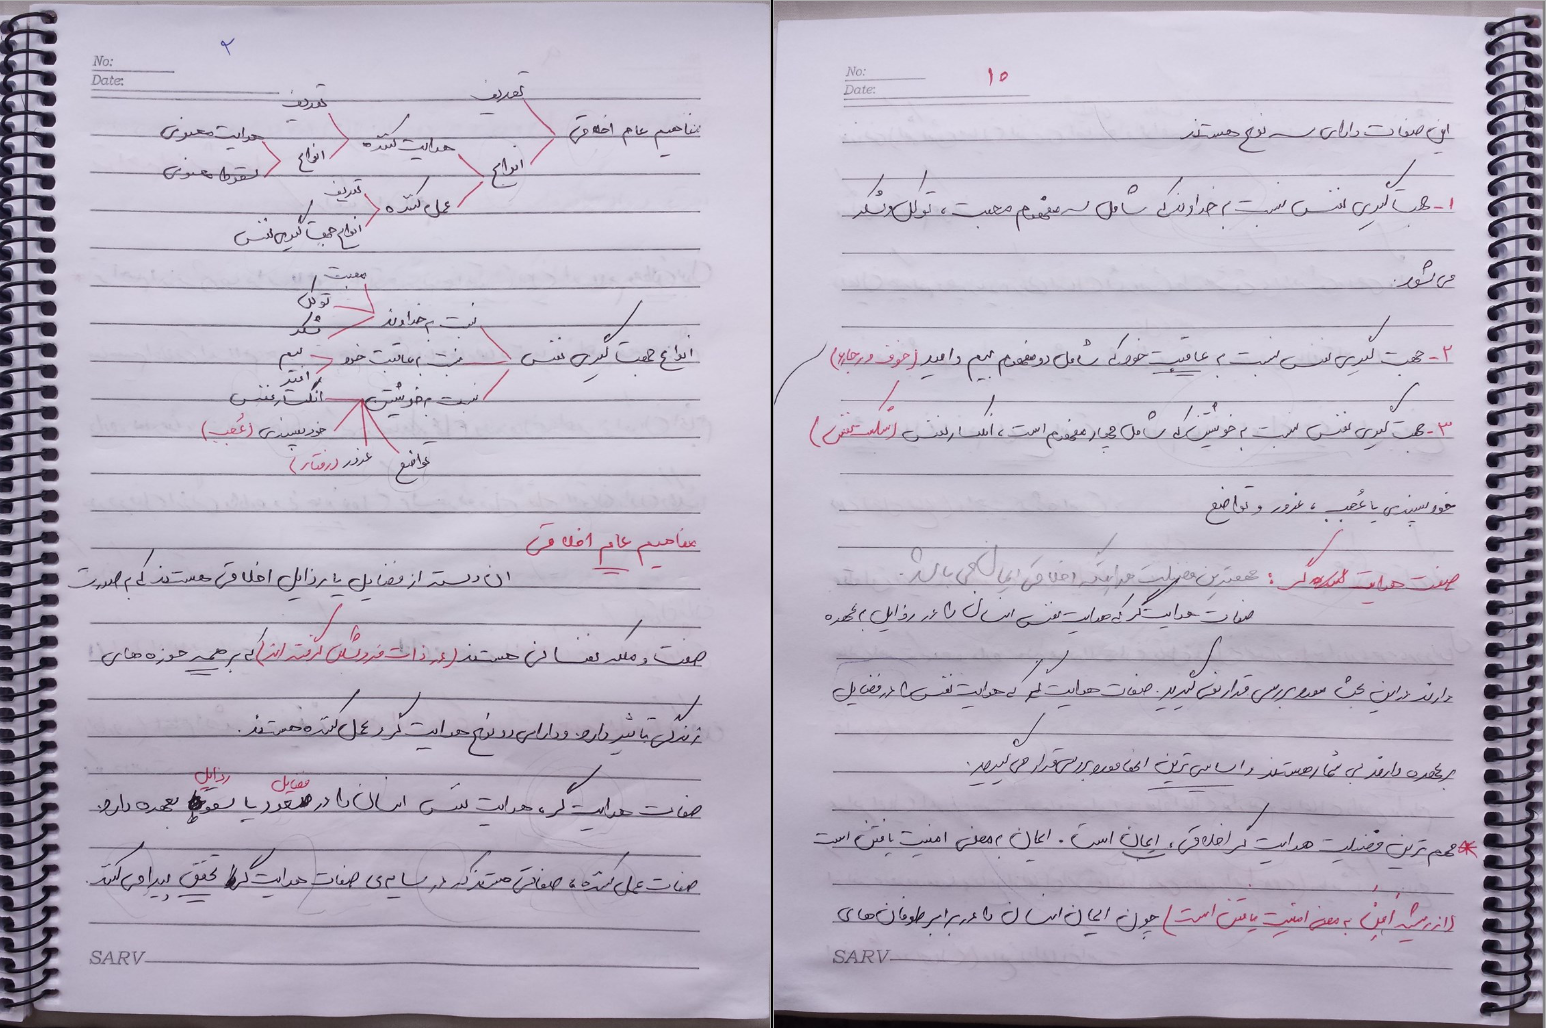 No:
Date:
۲
تعریف
مفاهیم عام اخلاقی
انواع
هدایت کننده
تعریف
انواع
هدایت معنوی
سقوط معنوی
عمل کننده
تعریف
انواع جهت گیری نفس
انواع جهت گیری نفس
نسبت به خداوند
محبت
توکل
شکر
نسبت به عاقبت خود
بیم
امید
نسبت به خویشتن
انکسار نفس
خودپسندی (عُجب)
غرور (رفتار)
تواضع
مفاهیم عام اخلاقی
ان دسته از فضایل یا رذایل اخلاقی هستند که به صورت
صفت و ملکه نفسانی هستند (در ذات فرد شکل گرفته اند) که بر همه حوزه های
زندگی تاثیر دارد و دارای دو نوع هدایت گر و عمل کننده هستند.
فضایل رذایل
صفات هدایت گر، هدایت نفس انسان را در صعود یا سقوط بعهده دارد
صفات عمل کننده، صفاتی هستند که در سایه ی صفات هدایت گر تحقق پیدا می کنند.
SARV
No:
Date:
۱۰
این صفات دارای سه نوع هستند
۱- جهت گیری نفس نسبت به خداوند که شامل سه مفهوم محبت، توکل و شکر
می شود.
۲- جهت گیری نفس نسبت به عاقبت خود که شامل دو مفهوم بیم و امید (خوف و رجاء)
۳- جهت گیری نفس نسبت به خویشتن که شامل چهار مفهوم است، انکسار نفس (شکست نفس)
خودپسندی یا عُجب، غرور و تواضع
صفت هدایت گر: مهمترین فضیلت هدایتگر اخلاقی ایمان می باشد.
صفات هدایت گر که هدایت نفس انسان را در رذایل به عهده
دارند در این بحث مورد بررسی قرار نمی گیرید. صفات هدایت گر که هدایت نفس را در فضایل
بر عهده دارند بی شمار هستند و اساسی ترین انها مورد بررسی قرار می گیرید.
* مهم ترین فضیلت هدایت گر اخلاقی، ایمان است. ایمان به معنی امنیت یافتن است
(از ریشه أمِنَ به معنی امنیت یافتن است) چون ایمان انسان را در برابر طوفان های
SARV